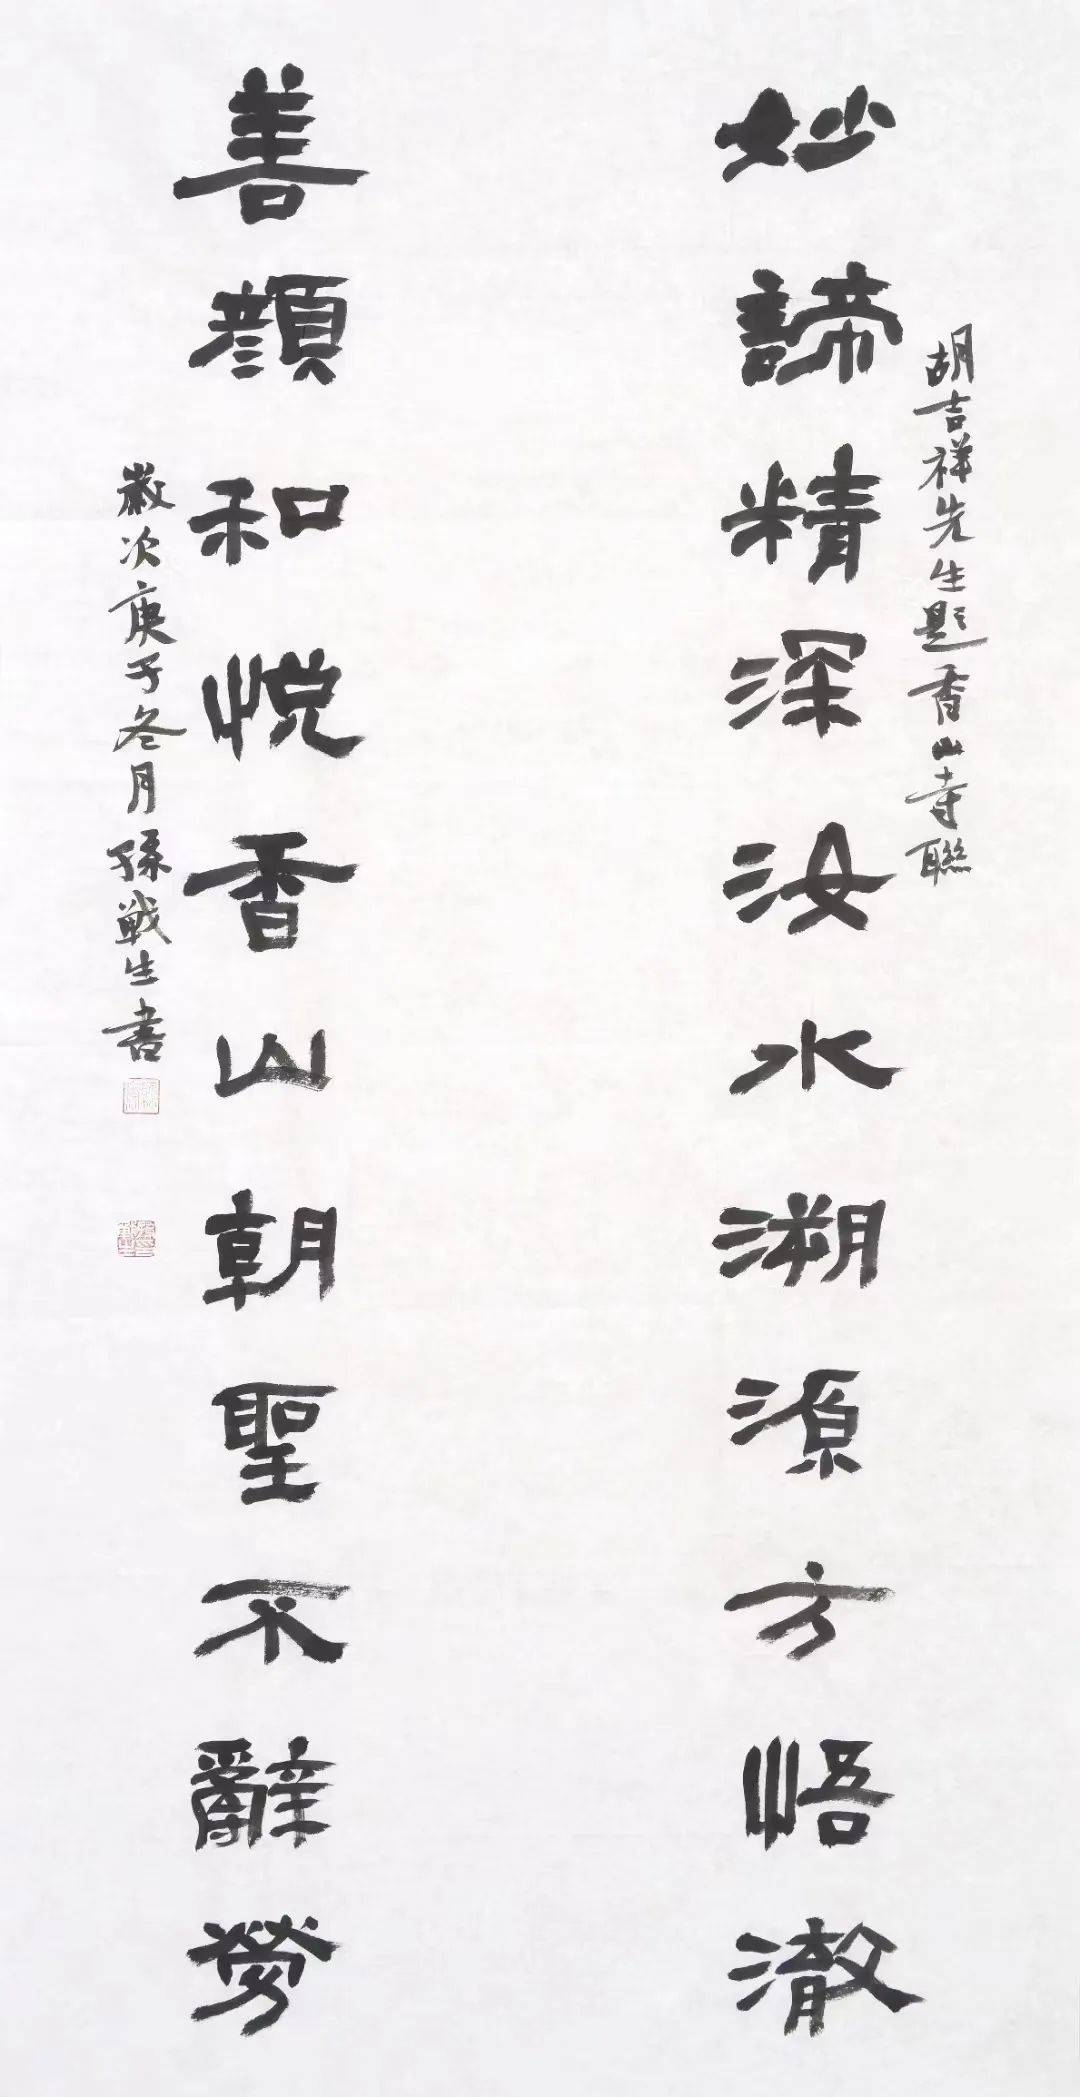 胡吉祥先生題香山寺聯
妙諦精深汝水溯源方悟澈
善顏和悅香山朝聖不辭勞
歲次庚子冬月孫戰生書